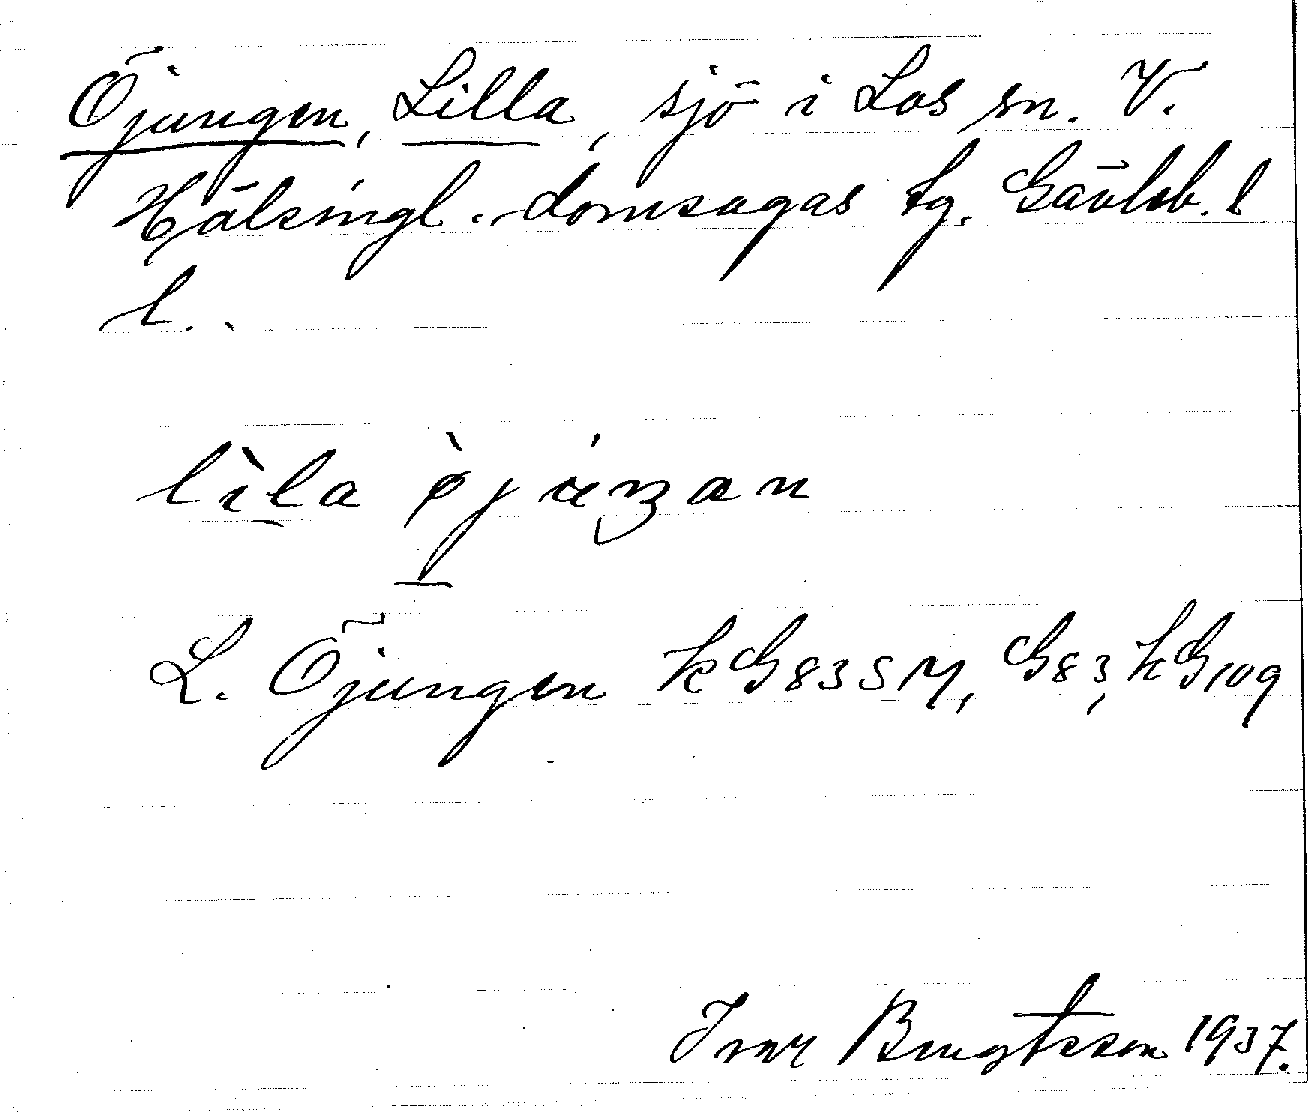 Öjungen, Lilla, sjö i Los sn. V.
Hälsingl. domsagas tg. Gävleb. l
l.
lìla
L. Öjungen kG83SM, G83, kG109
Ivar Bengtsson 1937.